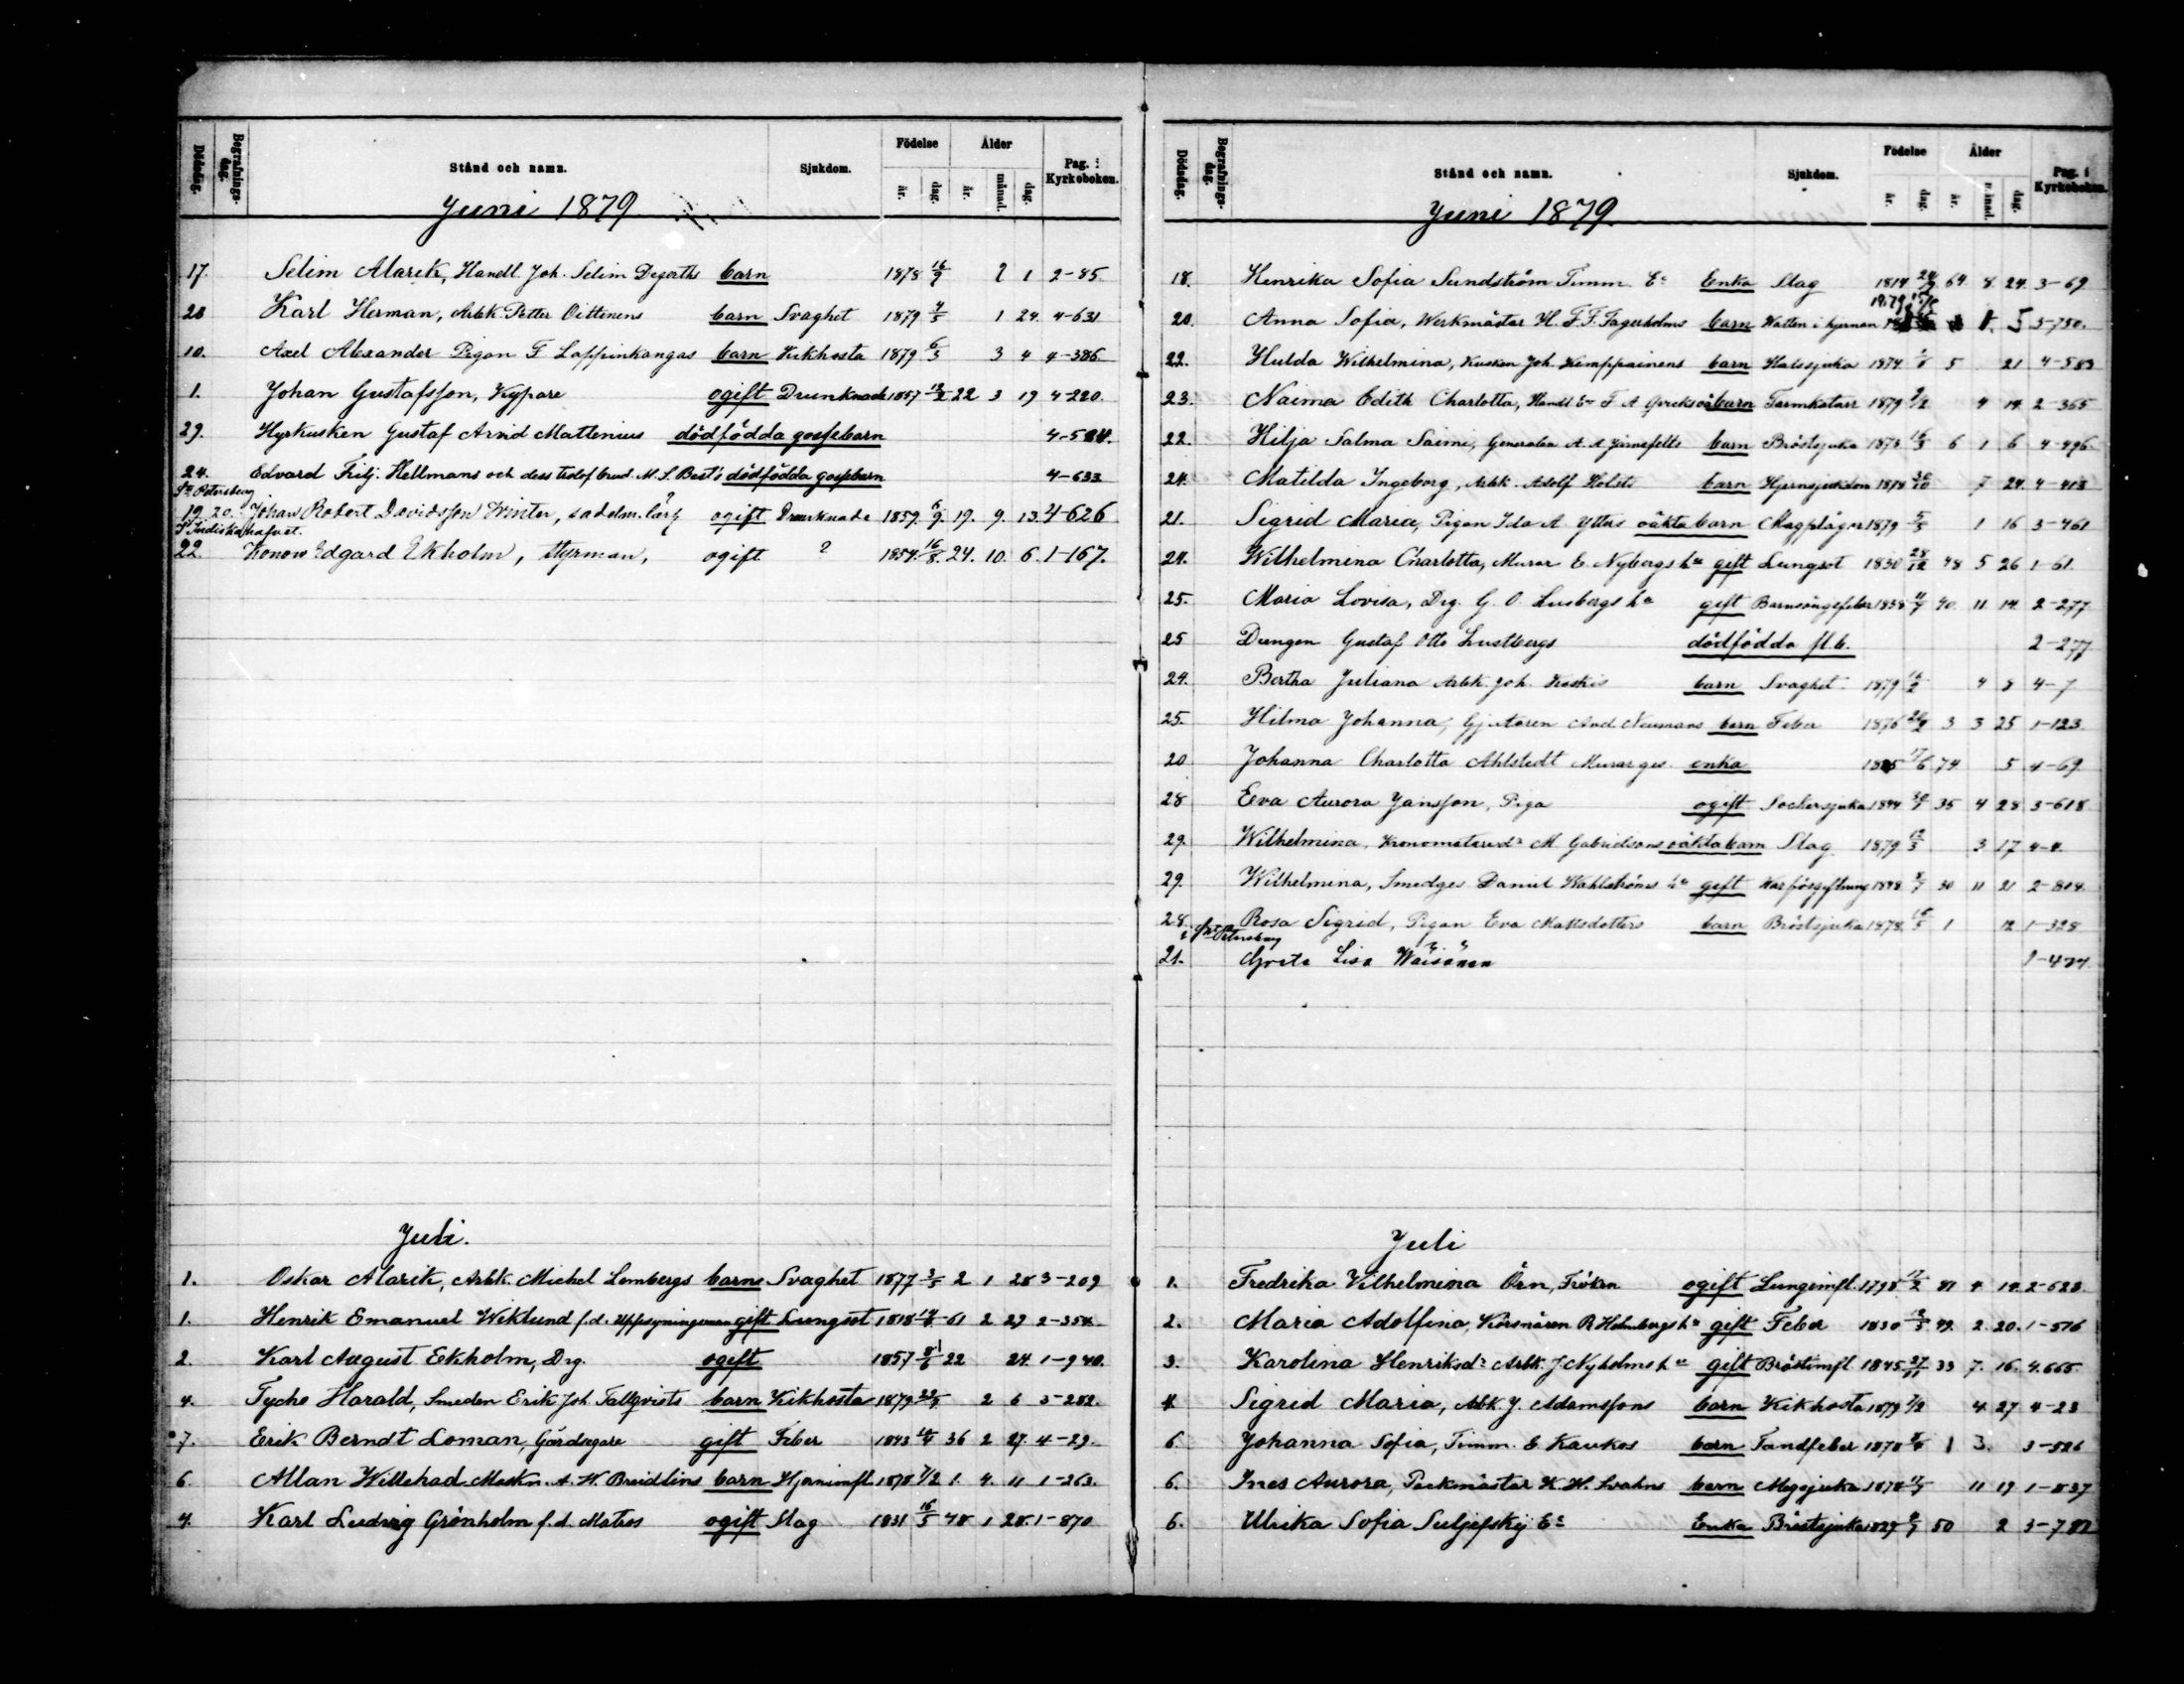 Dödsdag. Begrafnings-dag. Stånd och namn. Sjukdom. Födelse år. dag. Ålder år. månad. dag. Pag. i Kyrkoboken.
Juni 1879
17. Selim Alarik, Handl. Joh. Selim Degerths barn 1878 16/9 2 1 2-85
28 Karl Herman, Arbk. Petter Oittinens barn Svaghet 1879 4/5 1 24. 4-631
10. Axel Alexander Pigan F Lappinkangas barn Kikhosta 1879 6/3 3 4 4-386
1. Johan Gustafsson, Kypare ogift Drunknade 1857 12/2 22 3 19 4-220
29. Hyrkusken Gustaf Arvid Mattenius dödfödda gossebarn 4-524.
24. Edvard Filj. Hellmans och dess trolof. brud. M. S. Best's dödfödda gossebarn 4-633
St Petersburg
19. 20. Johan Robert Davidsson Winter, sadelm. lärl? ogift Drunknade 1859. 6/9. 19. 9. 13. 4-626
I Indiska hafvet.
22. Konow Edgard Ekholm, styrman, ogift ? 1854. 16/8. 24. 10. 6. 1-167.
Juli.
1. Oskar Alarik, Arbk. Michel Lembergs barns Svaghet 1877 3/5 2 1 28 3-209
1. Henrik Emanuel Wiklund f.d. Uppsyningsman gift Lungsot 1818 61 2 29 2-354
2. Karl August Ekholm, Drg. ogift 1857 22 24. 1-940.
4. Tycho Harald, Smeden Erik Joh. Tallqvists barn Kikhosta 1879 2 6 3-282.
7. Erik Berndt Loman, Gårdsegare gift Feber 1843 36 2 27. 4-29.
6. Allan Willehad Maskn. A. W. Breidlins barn Hjerninfl. 1878 7/2 1. 4. 11 1-263.
4. Karl Ludvig Grönholm f.d. Matros ogift Slag 1831 16/5 48 1 28. 1-870
Dödsdag. Begrafnings-dag. Stånd och namn. Sjukdom. Födelse år. dag. Ålder år. månad. dag. Pag. i Kyrkoboken.
Juni 1879
18. Henrika Sofia Sundström Timm. Ea Enka Slag 1814 24/9 64 8 24. 3-69
20. Anna Sofia, Werkmästar H. F. F. Fagerholms barn Watten i hjernan 1879 1. 5 3-750.
22. Hulda Wilhelmina, Kusken Joh. Kemppainens barn Halssjuka 1874 5 21 4-583
23. Naima Edith Charlotta, Handl. F A barn Tarmkatarr 1879 9/2 4 14 2-365
22. Hilja Salma Saimi, Generalen A. A Järnefelts barn Bröstsjuka 1873 16/5 6 1 6 4-496.
24. Matilda Ingeborg, Arbk. Adolf Holsti barn Hjernsjukdom 1878 30/10 7 24. 4-413
21. Sigrid Maria, Pigan Ida A Yttus oäkta barn Magplågor 1879 5/5 1 16 3-461
24. Wilhelmina Charlotta, Murar E. Nybergs ha gift Lungsot 1830 28/12 48 5 26 1-61.
25. Maria Lovisa, Drg. G. O. Lusbergs ha gift Barnsängsfeber 1838 11/7 40. 11. 14. 2-277
25 Drängen Gustaf Otto Lustbergs dödfödda fl.b. 2-277
24. Bertha Juliana Arbk. Joh. Koskis barn Svaghet 1879 16/2 4 8 4-7
25. Hilma Johanna, Gjutaren And. Neumans barn Feber 1876 3 3 25 1-123.
20 Johanna Charlotta Ahlstedt Murarges. enka 1805 17/6 74 5 4-69
28 Eva Aurora Jansson, Piga ogift Sockersjuka 1844 30/1 35 4 28 3-618
29. Wilhelmina, Kronomatrosd. M Gabrielsons oäkta barn Slag 1879 12/3 3 17 4-4.
29. Wilhelmina, Smedges Daniel Wahlströms ha gift Karförgiftning 1848 8/7 30 11 21 2-804.
28 Rosa Sigrid, Pigan Eva Mattsdotters barn Bröstsjuka 1878 16/5 1 12 1-328
i St Petersburg
21. Greta Lisa Wäisänen 1-477
Juli
1. Fredrika Vilhelmina Örn, Fröken ogift Lunginfl. 1798 17/2 81 4 14. 2-628
2. Maria Adolfina, Körsnären R Holmbergs ha gift Feber 1830 12/5 49. 2. 20. 1-516
3. Karolina Henriksdr Arbk. J. Nyholms ha gift Bröstinfl. 1845 27/11 33 7. 16. 4.665.
4 Sigrid Maria, Arbk. J. Adamssons barn Kikhosta 1879 7/2 4. 27 4-23
6. Johanna Sofia, Timm. E. Kaukos barn Tandfeber 1878 1 3. 3-526
6. Ines Aurora, Packmästar K. H. Svahns barn Magsjuka 1878 17/7 11 19 1-837
6. Ulrika Sofia Suljefskij Ea Enka Bröstsjuka 1829 4/7 50 2 3-782